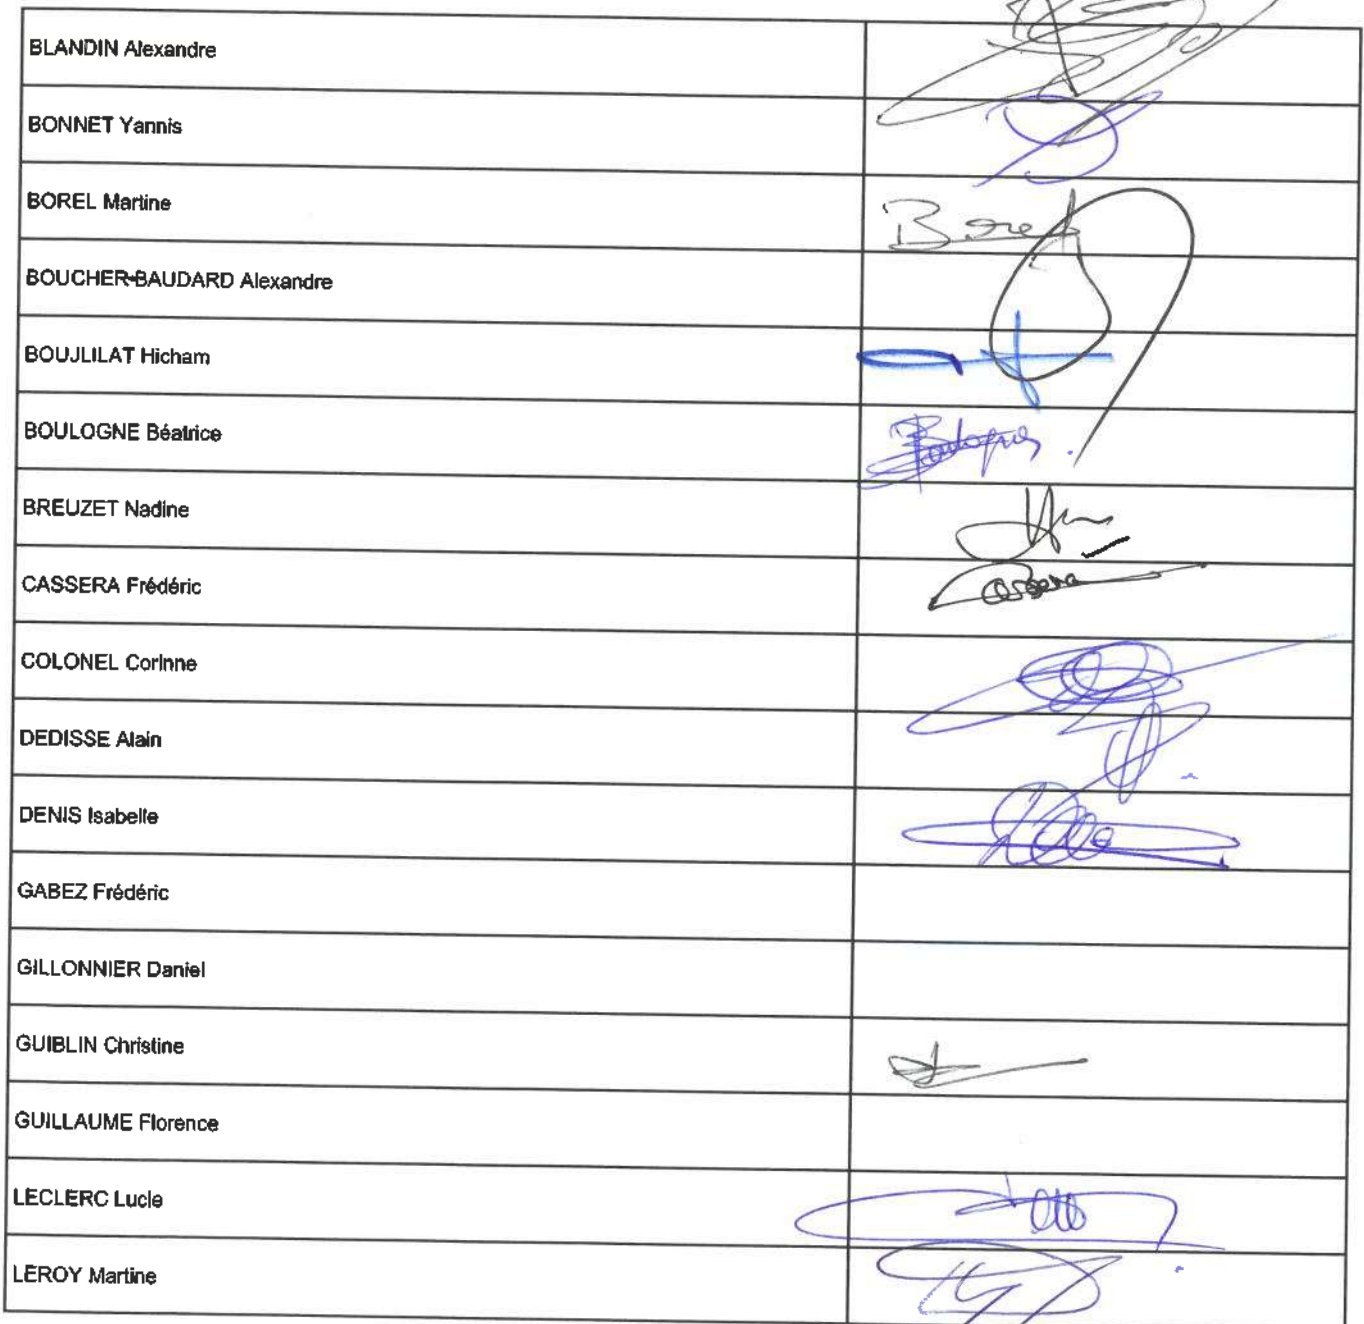 BLANDIN Alexandre
BONNET Yannis
BOREL Martine
Borel
BOUCHER-BAUDARD Alexandre
BOUJLILAT Hicham
BOULOGNE Béatrice
Boulogne
BREUZET Nadine
CASSERA Frédéric
Cassera
COLONEL Corinne
DEDISSE Alain
DENIS Isabelle
GABEZ Frédéric
GILLONNIER Daniel
GUIBLIN Christine
GUILLAUME Florence
LECLERC Lucie
LEROY Martine